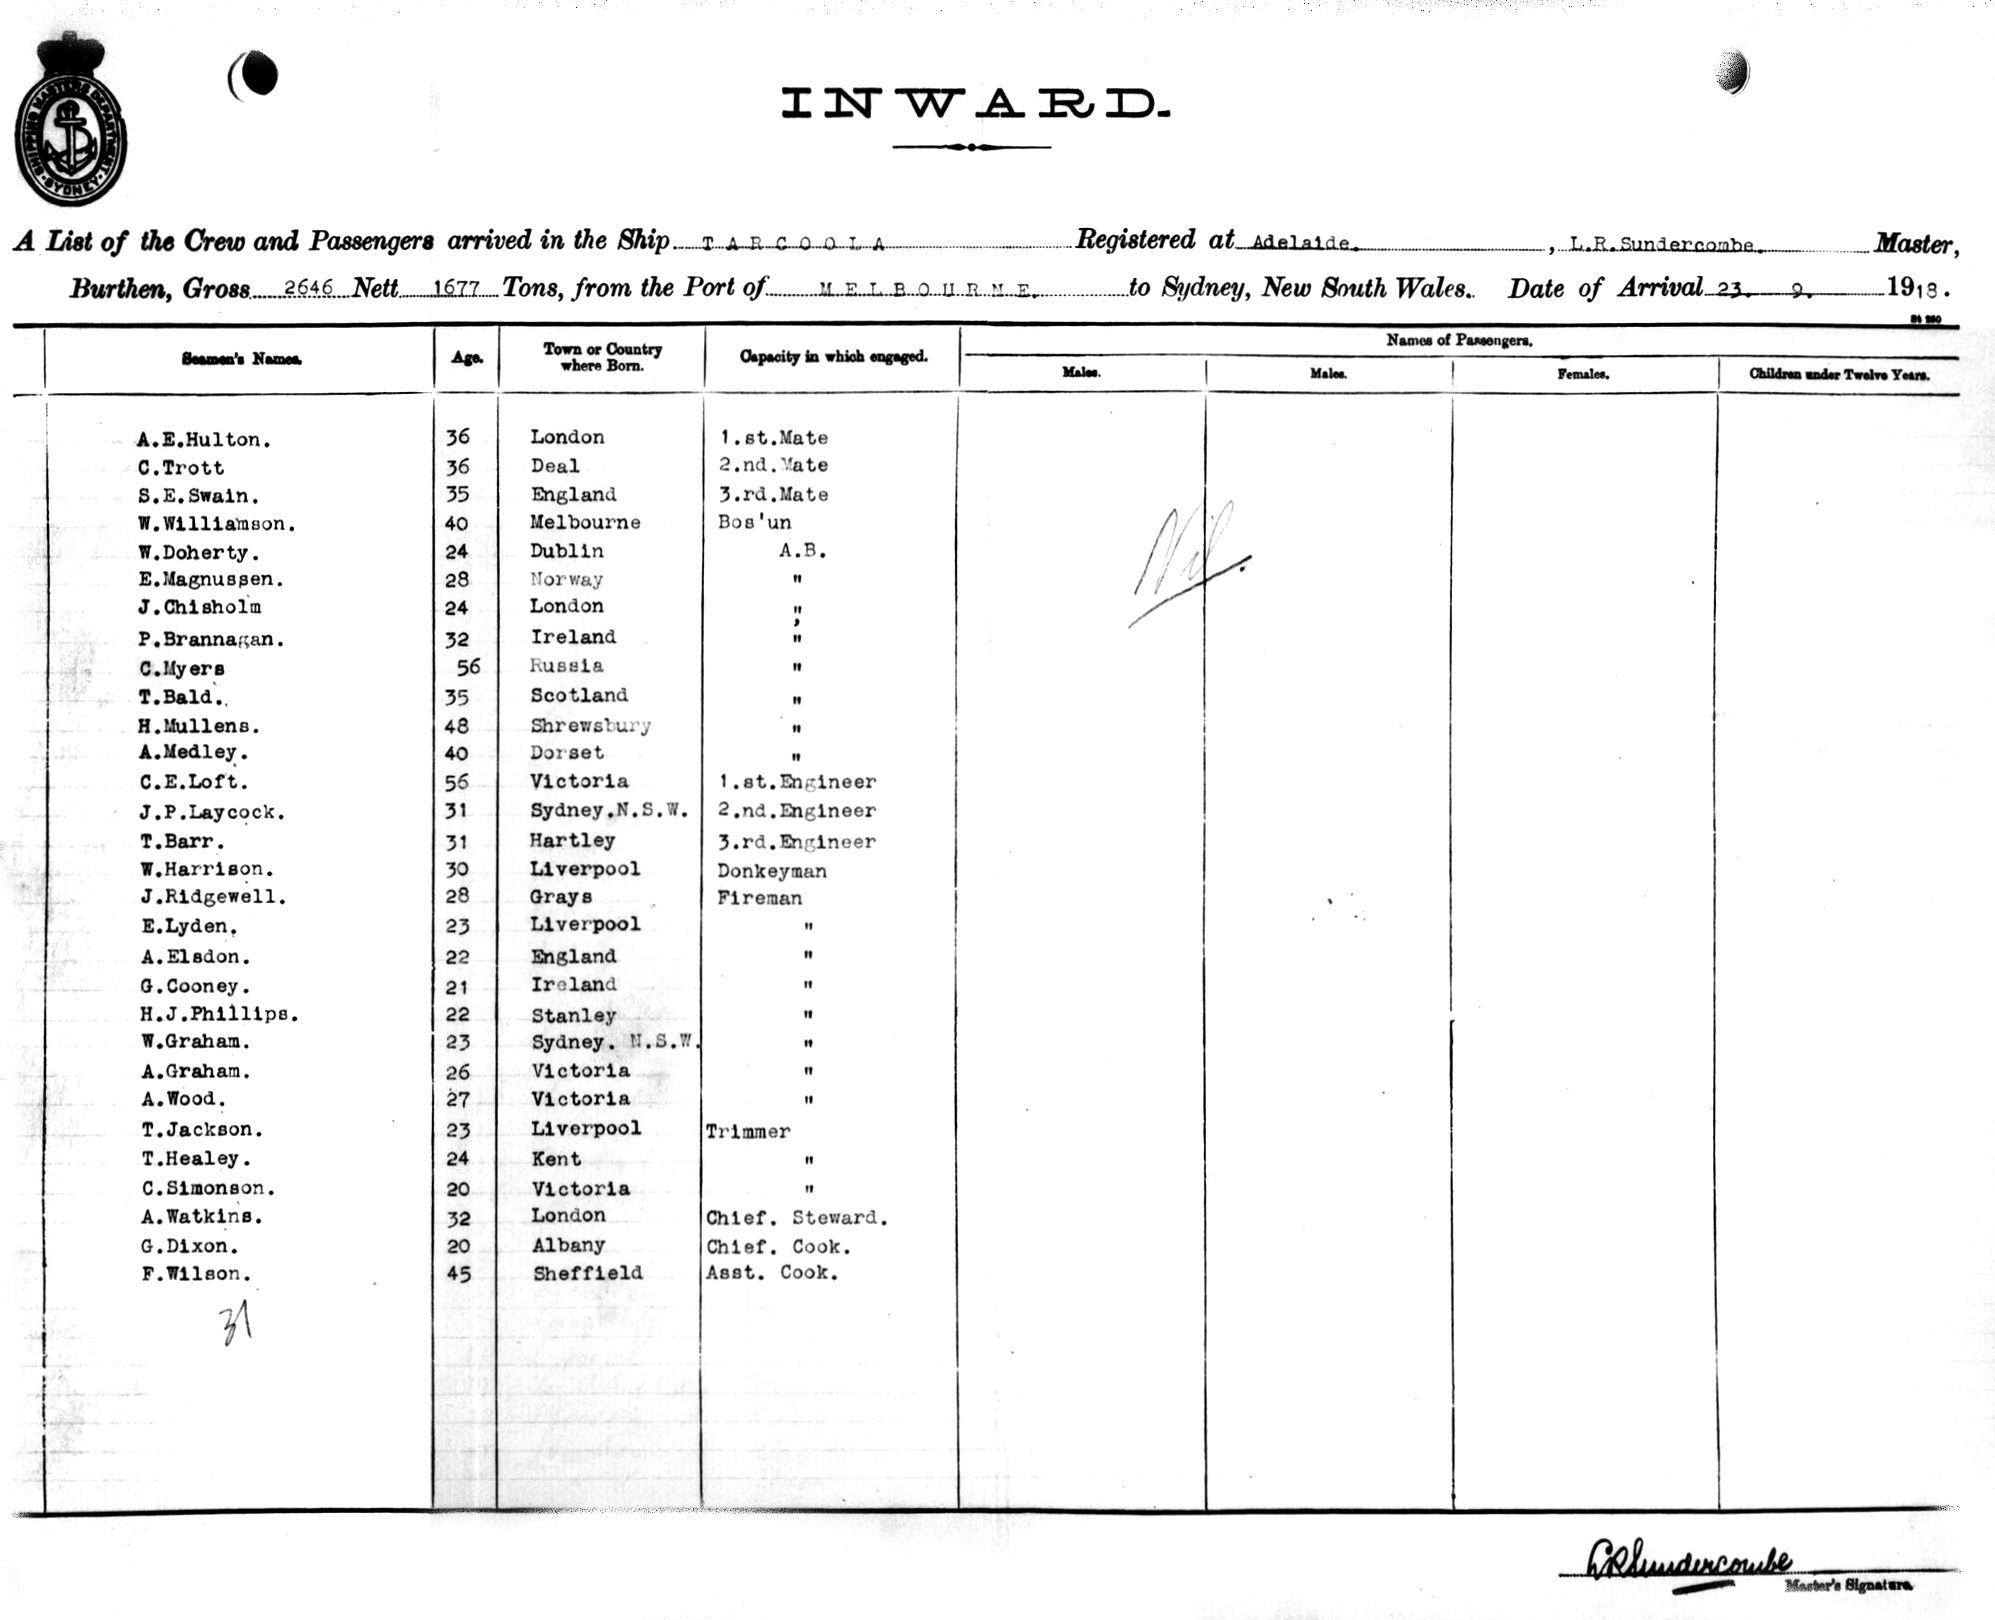 SHIPPING MASTERS DEPARTMENT. SYDNEY
INWARD.
A List of the Crew and Passengers arrived in the Ship TARCOOLA Registered at Adelaide. , L.R.Sundercombe. Master,
Burthen, Gross 2646 Nett 1677 Tons, from the Port of MELBOURNE. to Sydney, New South Wales. Date of Arrival 23. 9. 1918.
Seamen's Names. Age. Town or Country where Born. Capacity in which engaged. Names of Passengers.
Males. Males. Females. Children under Twelve Years.
A.E.Hulton. 36 London 1.st.Mate
C.Trott 36 Deal 2.nd.Mate
S.E.Swain. 35 England 3.rd.Mate
W.Williamson. 40 Melbourne Bos'un
W.Doherty. 24 Dublin A.B.
E.Magnussen. 28 Norway "
J.Chisholm 24 London "
P.Brannagan. 32 Ireland "
C.Myers 56 Russia "
T.Bald. 35 Scotland "
H.Mullens. 48 Shrewsbury "
A.Medley. 40 Dorset "
C.E.Loft. 56 Victoria 1.st.Engineer
J.P.Laycock. 31 Sydney.N.S.W. 2.nd.Engineer
T.Barr. 31 Hartley 3.rd.Engineer
W.Harrison. 30 Liverpool Donkeyman
J.Ridgewell. 28 Grays Fireman
E.Lyden. 23 Liverpool "
A.Elsdon. 22 England "
G.Cooney. 21 Ireland "
H.J.Phillips. 22 Stanley "
W.Graham. 23 Sydney. N.S.W. "
A.Graham. 26 Victoria "
A.Wood. 27 Victoria "
T.Jackson. 23 Liverpool Trimmer
T.Healey. 24 Kent "
C.Simonson. 20 Victoria "
A.Watkins. 32 London Chief. Steward.
G.Dixon. 20 Albany Chief. Cook.
F.Wilson. 45 Sheffield Asst. Cook.
Nil.
31
LRSundercombe
Master's Signature.